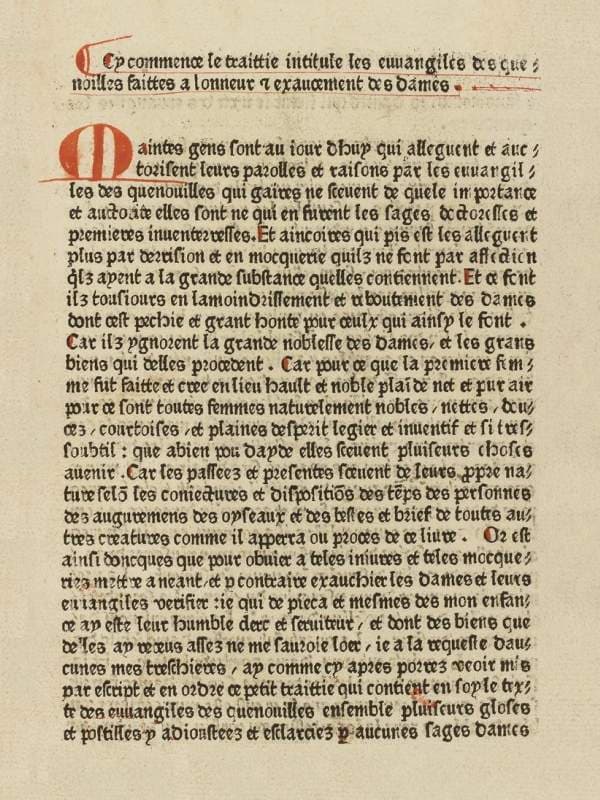 Cy commence le traittie intitule les euuangiles des que⸗
noilles faittes a lonneur ⁊ exaucement des dames.
Maintes gens sont au iour dhuy qui alleguent et auc⸗
torisent leurs parolles et raisons par les euuangil⸗
les des quenouilles qui gaires ne sceuent de quele importance
et auctorite elles sont ne qui en furent les sages doctoresses et
premieres inuenterresses. Et aincoires qui pis est les alleguent
plus par derrision et en mocquerie quilz ne font par affection
qͥlz ayent a la grande substance quelles contiennent. Et ce font
ilz tousiours en lamoindrissement et reboutement des dames
dont cest pechie et grant honte pour ceulx qui ainsy le font .
Car ilz ygnorent la grande noblesse des dames, et les grans
biens qui delles procedent . Car pour ce que la premiere fem⸗
me fut faitte et cree en lieu hault et noble plaī de net et pur air
pour ce sont toutes femmes naturelement nobles / nettes / dou⸗
cez / courtoises / et plaines desperit legier et inuentif et si tres⸗
soubtil : que abien pou dayde elles sceuent pluiseurs choses
auenir . Car les passeez et presentes sceuent de leurs ꝓpre na⸗
ture selō les coniectures et dispositiōs des tēps des personnes
des auguremens des oyseaux et des bestes et brief de toutes au⸗
tres creatures comme il apperra ou proces de ce liure . Or est
ainsi doncques que pour obuier a teles iniures et teles mocque⸗
riez mettre a neant / et p contraire exauchier les dames et leurs
euuangiles verifier : ie qui de pieca et mesmes des mon enfan⸗
ce ay este leur humble clerc et seruiteur / et dont des biens que
delles ay receus assez ne me sauroie loer / ie a la requeste dau⸗
cunes mes treschieres / ay comme cy apres porrez veoir mis
par escript et en ordre ce petit traittie qui contient en soy le tex⸗
te des euuangiles des quenouilles ensemble pluiseurs gloses
et postilles y adiousteez et esclarciez p aucunes sages dames